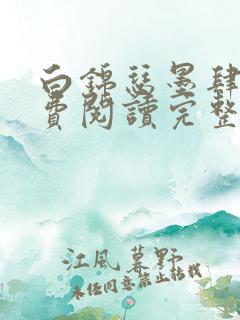 白錦瑟墨肆
費閱讀完整
江風暮野
未經同意禁止轉載